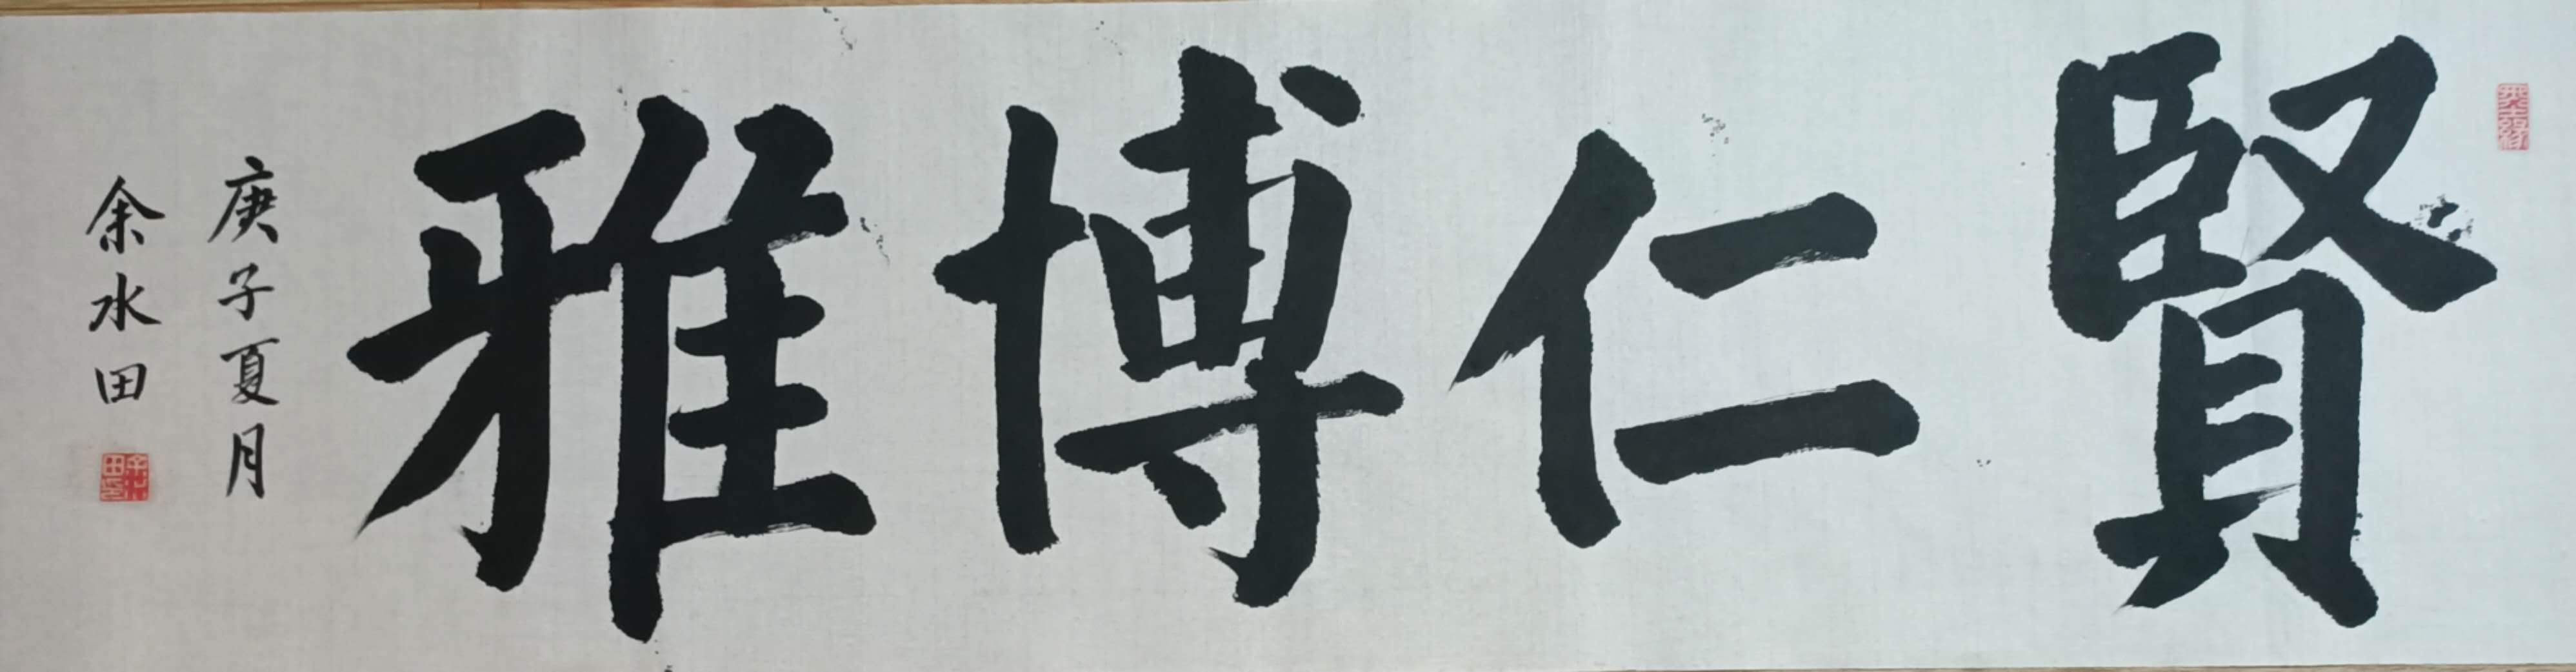 賢仁博雅
庚子夏月
余水田